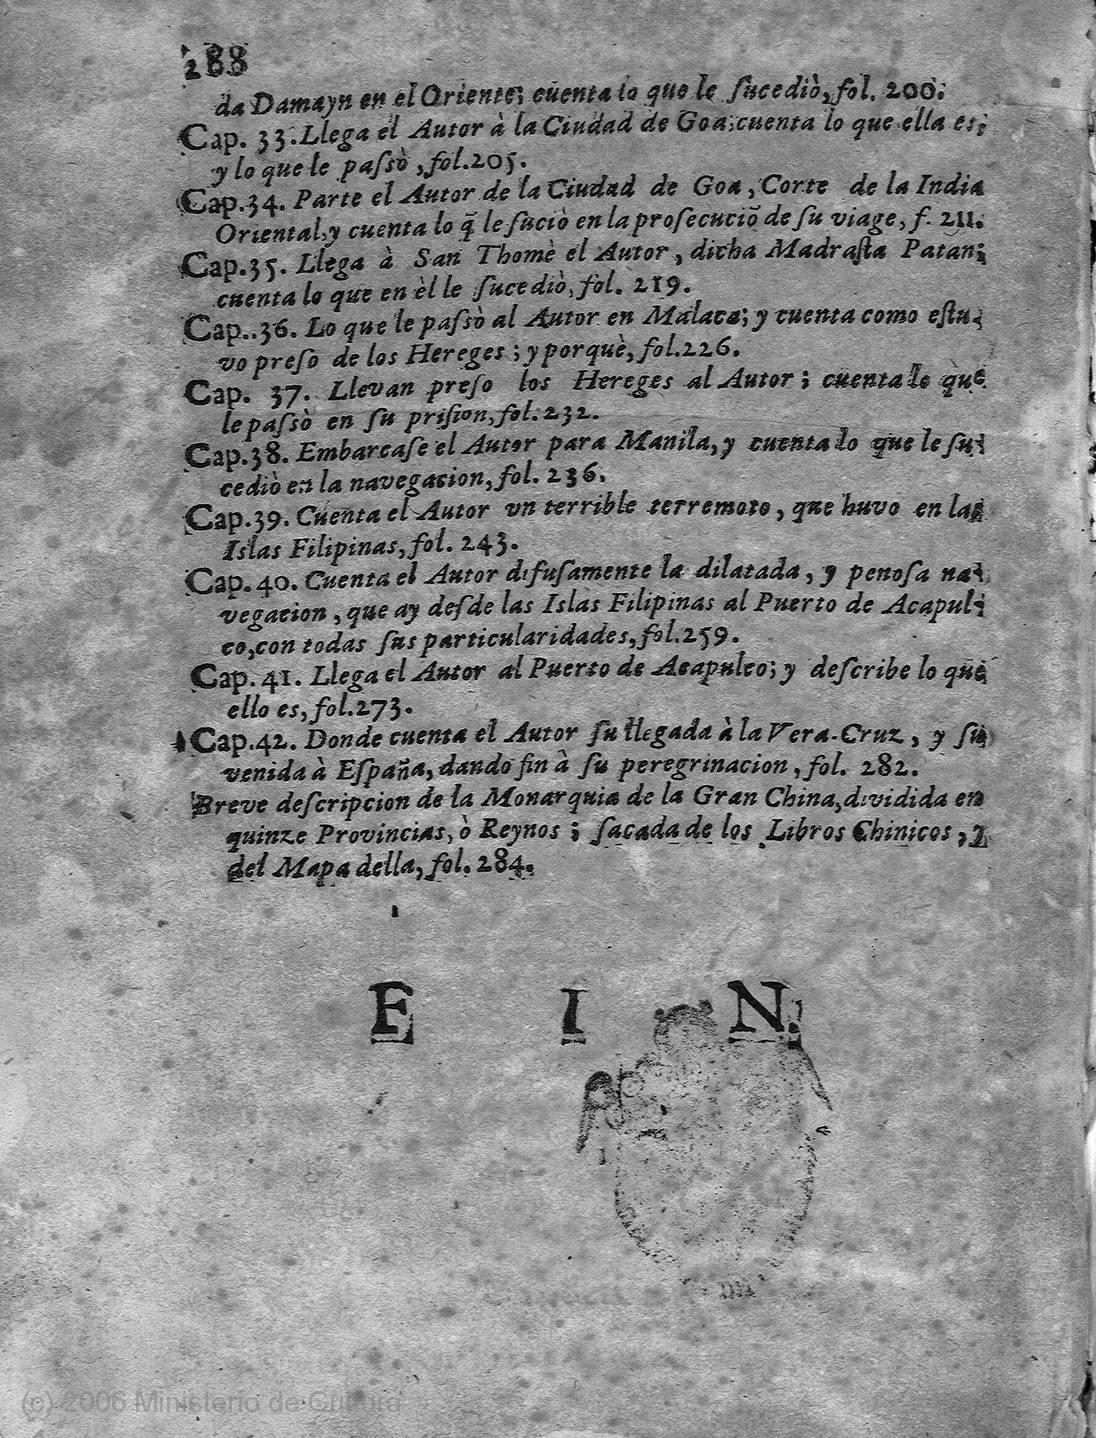 288
da Damayn en el Oriente; cuenta lo que le ſucediò, fol. 200.
Cap. 33. Llega el Autor à la Ciudad de Goa; cuenta lo que ella es,
y lo que le paſsò, fol. 205.
Cap. 34. Parte el Autor de la Ciudad de Goa, Corte de la India
Oriental, y cuenta lo q̃ le ſuciò en la proſecuciõ de ſu viage, f. 211.
Cap. 35. Llega à San Thomè el Autor, dicha Madraſta Patan;
cuenta lo que en èl le ſucediò, fol. 219.
Cap.. 36. Lo que le paſsò al Autor en Malaca; y cuenta como eſtu-
vo preſo de los Hereges; y porquè, fol. 226.
Cap. 37. Llevan preſo los Hereges al Autor; cuenta lo que
le paſsò en ſu priſion, fol. 232.
Cap. 38. Embarcaſe el Autor para Manila, y cuenta lo que le ſu-
cediò en la navegacion, fol. 236.
Cap. 39. Cuenta el Autor un terrible terremoto, que huvo en las
Islas Filipinas, fol. 243.
Cap. 40. Cuenta el Autor difuſamente la dilatada, y penoſa na-
vegacion, que ay deſde las Islas Filipinas al Puerto de Acapul-
co, con todas ſus particularidades, fol. 259.
Cap. 41. Llega el Autor al Puerto de Acapulco; y deſcribe lo que
ello es, fol. 273.
Cap. 42. Donde cuenta el Autor ſu llegada à la Vera-Cruz, y ſu
venida à Eſpaña, dando fin à ſu peregrinacion, fol. 282.
Breve deſcripcion de la Monarquia de la Gran China, dividida en
quinze Provincias, ò Reynos; ſacada de los Libros Chinicos, y
del Mapa della, fol. 284.
F I N.
(c) 2006 Ministerio de Cultura